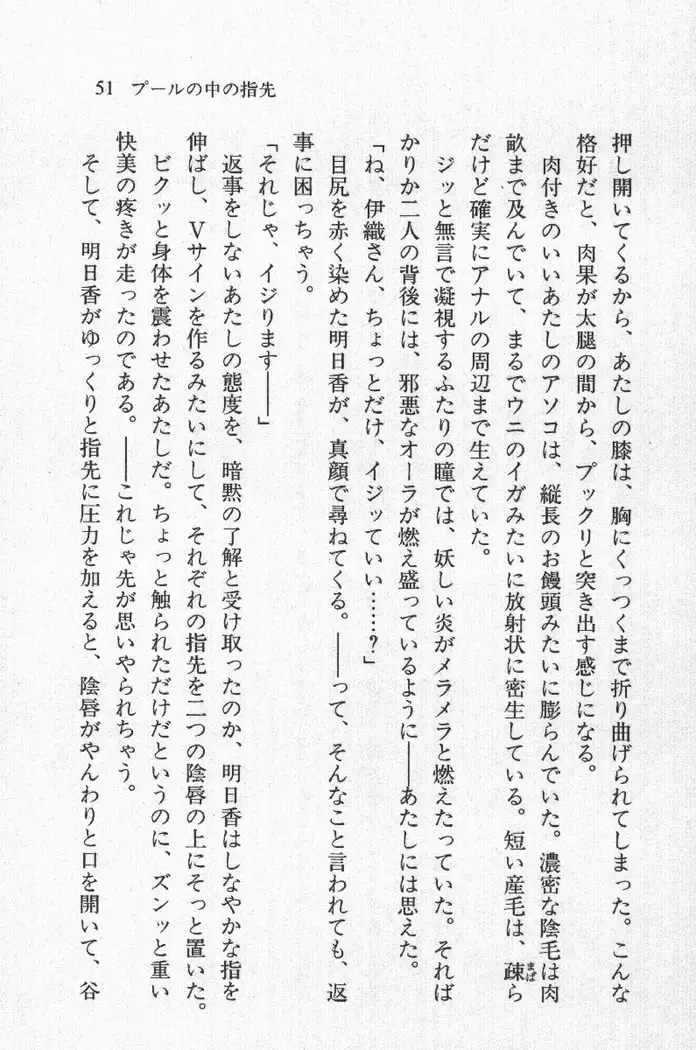 51 プールの中の指先
押し開いてくるから、あたしの膝は、胸にくっつくまで折り曲げられてしまった。こんな
格好だと、肉果が太腿の間から、プックリと突き出す感じになる。
肉付きのいいあたしのアソコは、縦長のお饅頭みたいに膨らんでいた。濃密な陰毛は肉
畝まで及んでいて、まるでウニのイガみたいに放射状に密生している。短い産毛は、疎まばら
だけど確実にアナルの周辺まで生えていた。
ジッと無言で凝視するふたりの瞳では、妖しい炎がメラメラと燃えたっていた。そればかりか
二人の背後には、邪悪なオーラが燃え盛っているように――あたしには思えた。
「ね、伊織さん、ちょっとだけ、イジッていい……？」
目尻を赤く染めた明日香が、真顔で尋ねてくる。――って、そんなこと言われても、返
事に困っちゃう。
「それじゃ、イジります――」
返事をしないあたしの態度を、暗黙の了解と受け取ったのか、明日香はしなやかな指を
伸ばし、Ｖサインを作るみたいにして、それぞれの指先を二つの陰唇の上にそっと置いた。
ビクッと身体を震わせたあたしだ。ちょっと触られただけだというのに、ズンッと重い
快美の疼きが走ったのである。――これじゃ先が思いやられちゃう。
そして、明日香がゆっくりと指先に圧力を加えると、陰唇がやんわりと口を開いて、谷